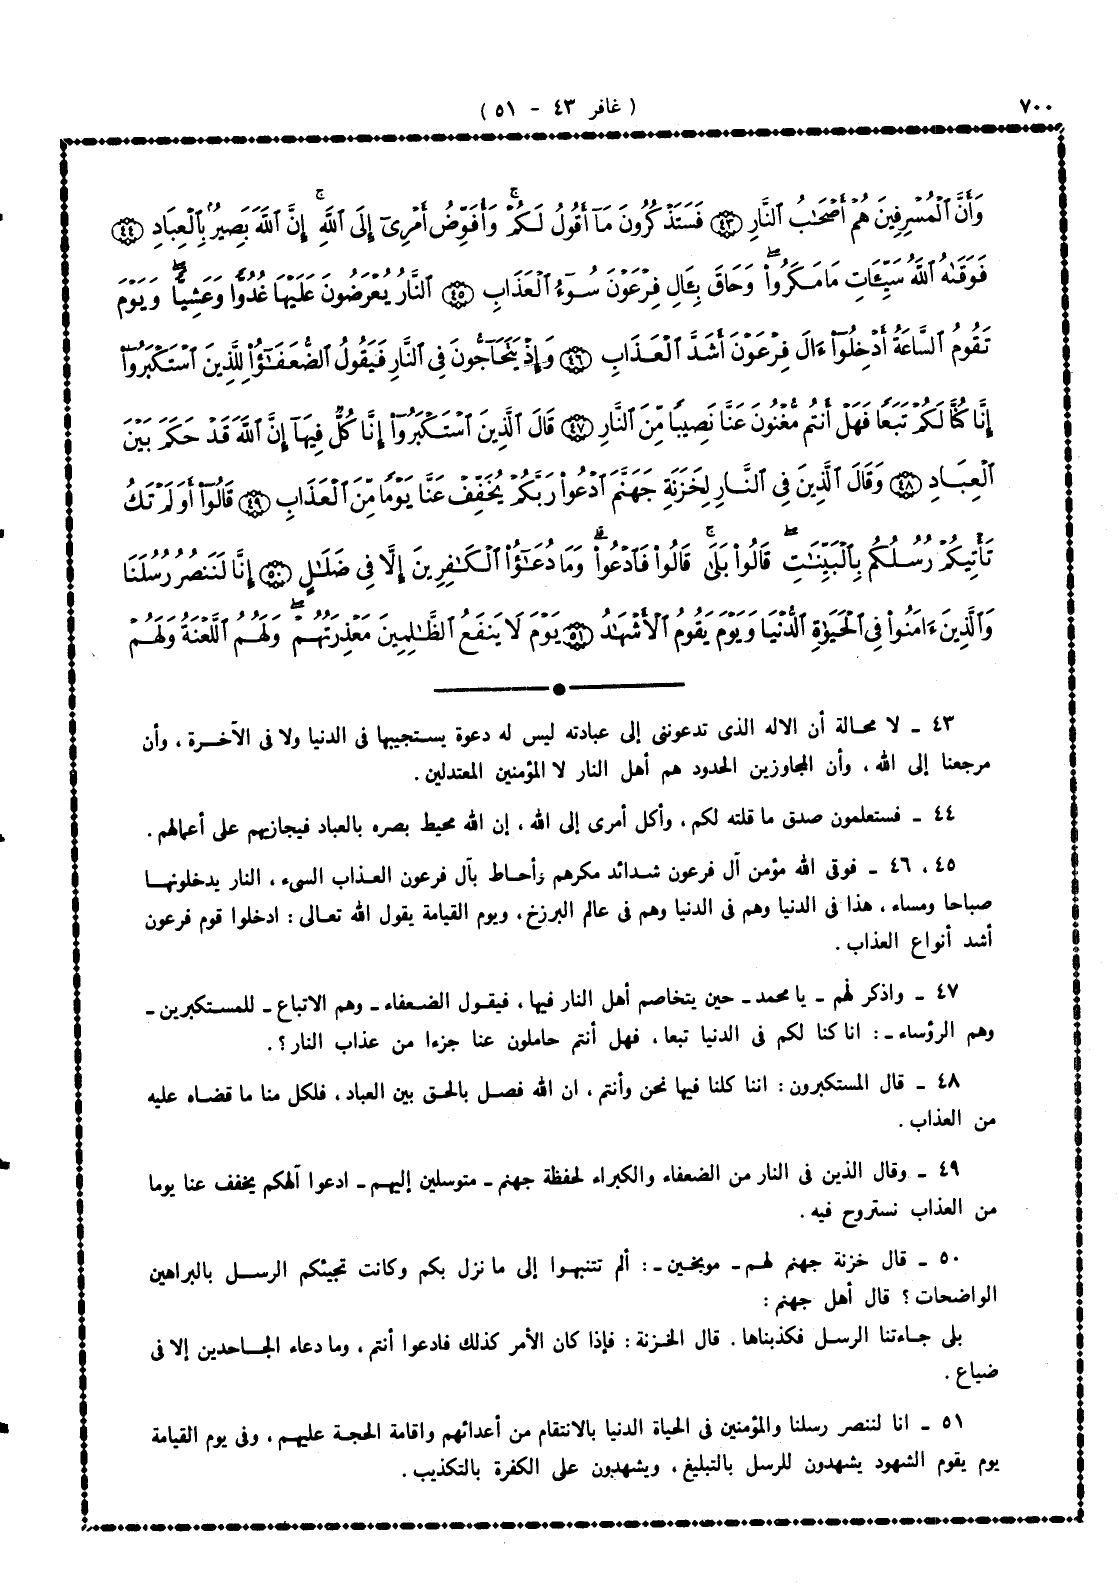 ٧٠٠
( غافر ٤٣ - ٥١ )
وَأَنَّ ٱلْمُسْرِفِينَ هُمْ أَصْحَٰبُ ٱلنَّارِ ﴿٤٣﴾ فَسَتَذْكُرُونَ مَآ أَقُولُ لَكُمْ ۚ وَأُفَوِّضُ أَمْرِىٓ إِلَى ٱللَّهِ ۚ إِنَّ ٱللَّهَ بَصِيرٌۢ بِٱلْعِبَادِ ﴿٤٤﴾
فَوَقَىٰهُ ٱللَّهُ سَيِّـَٔاتِ مَا مَكَرُوا۟ ۖ وَحَاقَ بِـَٔالِ فِرْعَوْنَ سُوٓءُ ٱلْعَذَابِ ﴿٤٥﴾ ٱلنَّارُ يُعْرَضُونَ عَلَيْهَا غُدُوًّا وَعَشِيًّا ۖ وَيَوْمَ
تَقُومُ ٱلسَّاعَةُ أَدْخِلُوٓا۟ ءَالَ فِرْعَوْنَ أَشَدَّ ٱلْعَذَابِ ﴿٤٦﴾ وَإِذْ يَتَحَآجُّونَ فِى ٱلنَّارِ فَيَقُولُ ٱلضُّعَفَٰٓؤُا۟ لِلَّذِينَ ٱسْتَكْبَرُوٓا۟
إِنَّا كُنَّا لَكُمْ تَبَعًا فَهَلْ أَنتُم مُّغْنُونَ عَنَّا نَصِيبًا مِّنَ ٱلنَّارِ ﴿٤٧﴾ قَالَ ٱلَّذِينَ ٱسْتَكْبَرُوٓا۟ إِنَّا كُلٌّ فِيهَآ إِنَّ ٱللَّهَ قَدْ حَكَمَ بَيْنَ
ٱلْعِبَادِ ﴿٤٨﴾ وَقَالَ ٱلَّذِينَ فِى ٱلنَّارِ لِخَزَنَةِ جَهَنَّمَ ٱدْعُوا۟ رَبَّكُمْ يُخَفِّفْ عَنَّا يَوْمًا مِّنَ ٱلْعَذَابِ ﴿٤٩﴾ قَالُوٓا۟ أَوَلَمْ تَكُ
تَأْتِيكُمْ رُسُلُكُم بِٱلْبَيِّنَٰتِ ۖ قَالُوا۟ بَلَىٰ ۚ قَالُوا۟ فَٱدْعُوا۟ ۗ وَمَا دُعَٰٓؤُا۟ ٱلْكَٰفِرِينَ إِلَّا فِى ضَلَٰلٍ ﴿٥٠﴾ إِنَّا لَنَنصُرُ رُسُلَنَا
وَٱلَّذِينَ ءَامَنُوا۟ فِى ٱلْحَيَوٰةِ ٱلدُّنْيَا وَيَوْمَ يَقُومُ ٱلْأَشْهَٰدُ ﴿٥١﴾ يَوْمَ لَا يَنفَعُ ٱلظَّٰلِمِينَ مَعْذِرَتُهُمْ ۖ وَلَهُمُ ٱللَّعْنَةُ وَلَهُمْ
٤٣ ـ لا محالة أن الاله الذى تدعوننى إلى عبادته ليس له دعوة يستجيبها فى الدنيا ولا فى الآخرة ، وأن
مرجعنا إلى الله ، وأن المجاوزين الحدود هم أهل النار لا المؤمنين المعتدلين .
٤٤ ـ فستعلمون صدق ما قلته لكم ، وأكل أمرى إلى الله ، إن الله محيط بصره بالعباد فيجازيهم على أعمالهم .
٤٥ ، ٤٦ ـ فوقى الله مؤمن آل فرعون شدائد مكرهم وأحاط بآل فرعون العذاب السىء ، النار يدخلونها
صباحا ومساء ، هذا فى الدنيا وهم فى الدنيا وهم فى عالم البرزخ ، ويوم القيامة يقول الله تعالى : ادخلوا قوم فرعون
أشد أنواع العذاب .
٤٧ ـ واذكر لهم ـ يا محمد ـ حين يتخاصم أهل النار فيها ، فيقول الضعفاء ـ وهم الاتباع ـ للمستكبرين ـ
وهم الرؤساء ـ : انا كنا لكم فى الدنيا تبعا ، فهل أنتم حاملون عنا جزءا من عذاب النار ؟ .
٤٨ ـ قال المستكبرون : اننا كلنا فيها نحن وأنتم ، ان الله فصل بالحق بين العباد ، فلكل منا ما قضاه عليه
من العذاب .
٤٩ ـ وقال الذين فى النار من الضعفاء والكبراء لحفظة جهنم ـ متوسلين إليهم ـ ادعوا آلهكم يخفف عنا يوما
من العذاب نستروح فيه .
٥٠ ـ قال خزنة جهنم لهم ـ موبخين ـ : ألم تتنبهوا إلى ما نزل بكم وكانت تجيئكم الرسل بالبراهين
الواضحات ؟ قال أهل جهنم :
بلى جاءتنا الرسل فكذبناها . قال الخزنة : فإذا كان الأمر كذلك فادعوا أنتم ، وما دعاء الجاحدين إلا فى
ضياع .
٥١ ـ انا لننصر رسلنا والمؤمنين فى الحياة الدنيا بالانتقام من أعدائهم واقامة الحجة عليهم ، وفى يوم القيامة
يوم يقوم الشهود يشهدون للرسل بالتبليغ ، ويشهدون على الكفرة بالتكذيب .